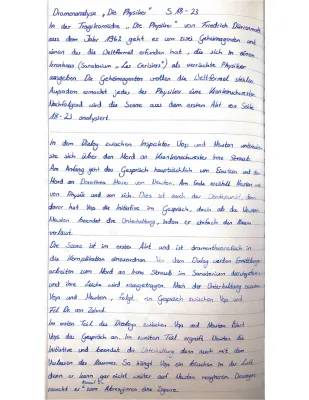 Dramenanalyse „Die Physiker" S. 18-23
In der Tragikomödie „Die Physiker" von Friedrich Dürrenmatt
aus dem Jahr 1962 geht es um zwei Geheimagenten und
einen der die Weltformel erfunden hat, die sich in einem
Irrenhaus (Sanatorium „Les Cerisiers") als verrückte Physiker
ausgeben. Die Geheimagenten wollen die Weltformel stehlen.
Außerdem ermordet jeder der Physiker eine Krankenschwester.
Nachfolgend wird die Szene aus dem ersten Akt von Seite
18-23 analysiert.
In dem Dialog zwischen Inspektor Voß und Newton unterhalten
sie sich über den Mord an Krankenschwester Irene Straub.
Am Anfang geht das Gespräch hauptsächlich um Einstein und den
Mord an Dorothea Moser von Newton. Am Ende erzählt Newton
von Physik und von sich. Dies ist auch der Wendepunkt, denn
davor hat Voß die Initiative im Gespräch, doch ab da
Newton beendet die Unterhaltung, indem er einfach den Raum
verlässt.
Die Szene ist im ersten Akt und ist dramentheoretisch in
die Komplikation einzuordnen. Vor dem Dialog werden Ermittlungs-
arbeiten zum Mord an Irene Straub im Sanatorium durchgeführt
und ihre Leiche wird rausgetragen. Nach der Unterhaltung zwischen
Voß und Newton, folgt ein Gespräch zwischen Voß und
Frl. Dr. von Zahnd.
Im ersten Teil des Dialogs zwischen Voß und Newton führt
Voß das Gespräch an. Im zweiten Teil ergreift Newton die
Initiative und beendet die Unterhaltung dann auch mit dem
Verlassen des Raumes. So hängt Voß ein bisschen in der Luft
denn er kann gar nicht weiter auf Newton